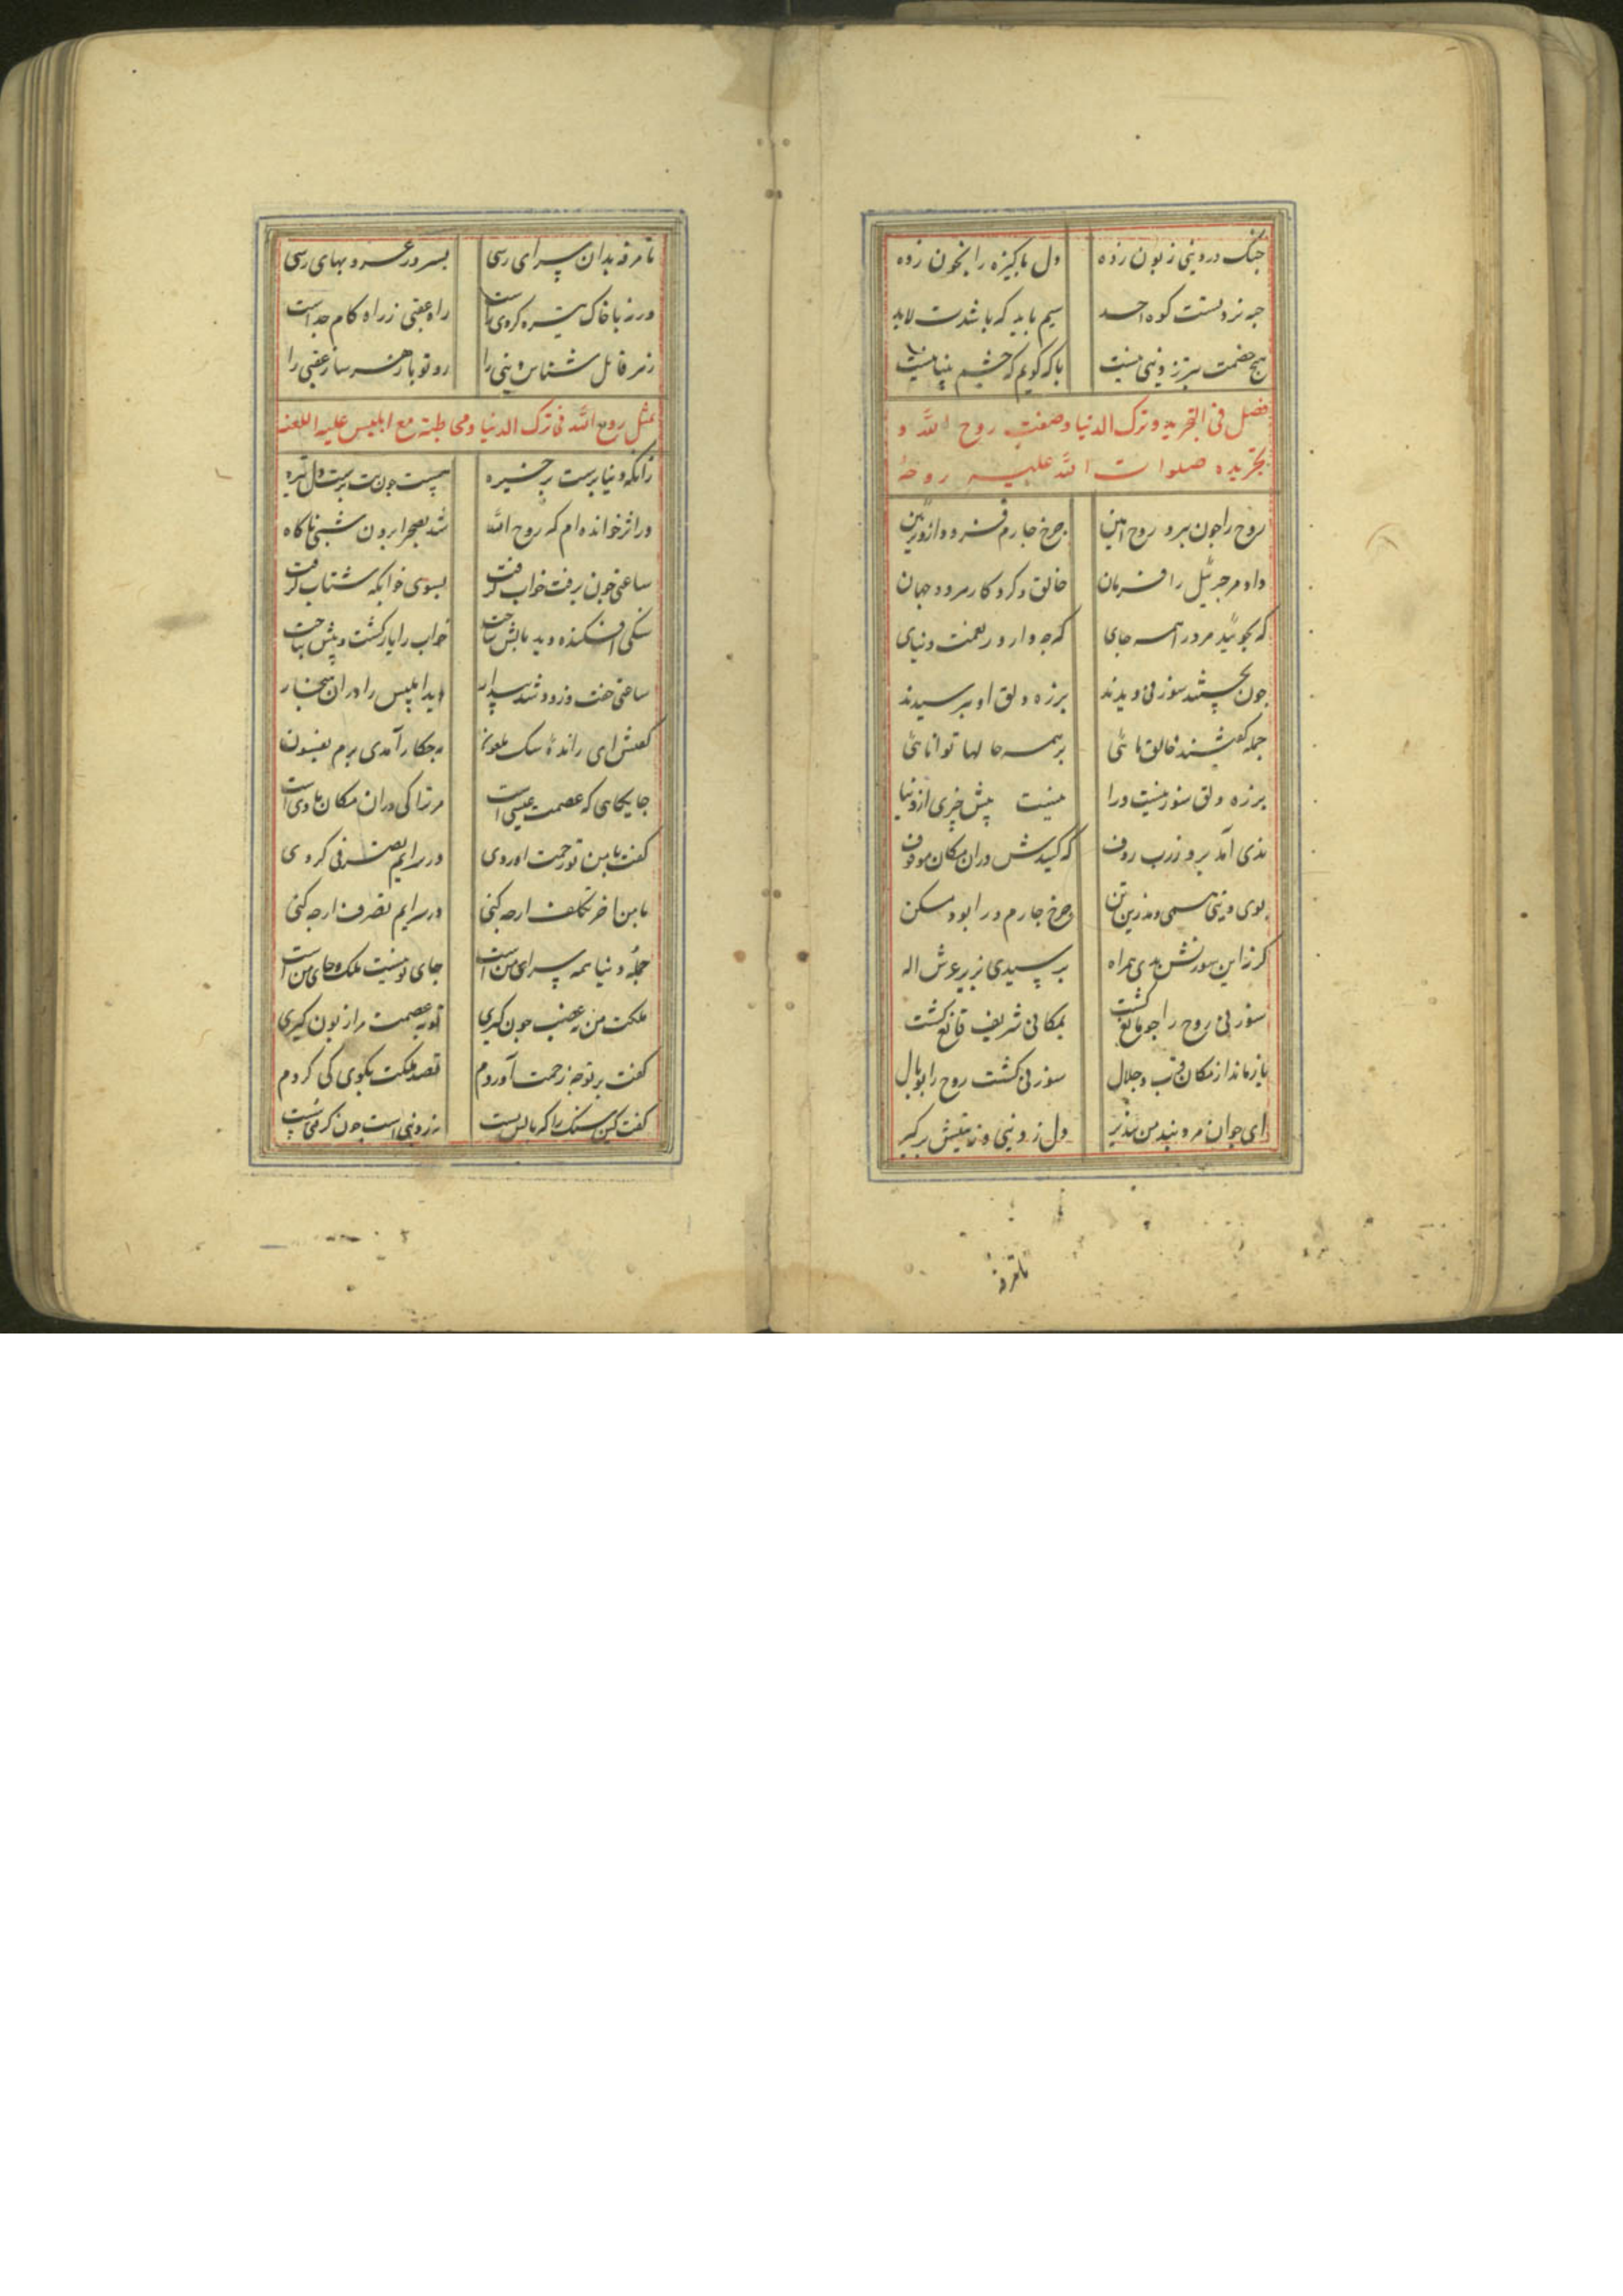 چنک در دینی زبون زده دل پاکیزه را بخون زده
چه نزدستت کوه احد سیم باید که باشدت لابد
هیچ خصمت بتر ز دینی نیست با که کویم که چشم بینا نیست
فصل فی التجرید و ترک الدنیا و صفت روح الله و
تجریده صلوات الله علیه روحه
روح را چون ببرد روح امین چرخ چارم فزود ازو تزیین
داد مر جبرئیل را فرمان خالق و کردکار هر دو جهان
که بجوئید مر ورا همه جای که چه دارد ز نعمت دنیای
چون بجستند سوزنی دیدند بر زه دلق او بپرسیدند
جمله کفتند خالق مائی بر همه حالها توانائی
بر زه دلق سوزنیست ورا نیست پیش چیزی از دنیا
ندی آمد برو ز رب روف که کنیدش در آن مکان موقوف
بوی دینی همی دمد زین تن چرخ چارم ورا بود مسکن
کر نه این سوزنش بدی همراه برسیدی بزیر عرش اله
سوزنی روح را چو مانع کشت بمکانی شریف قانع کشت
باز ماند از مکان قرب و جلال سوزنی کشت روح را بوبال
ای جوانمرد پند من بپذیر دل ز دینی و زینتش برکیر
تا مرفه
تا مرفه بدان سرای رسی بسرور عز و بهای رسی
ورنه با خاک تیره کردی راست راه عقبی ز راه کام جداست
زهر قاتل شناس دینی را رو تو بازهر ساز عقبی را
تمثل روح الله فی ترک الدنیا و مخاطبته مع ابلیس علیه اللعنه
زانکه دنیا پرست بر خیره هست چون بت پرست دل تیره
در اثر خوانده ام که روح الله شد بصحرا برون شبی ناکاه
ساعتی چون برفت خواب کرفت بسوی خوابکه شتاب کرفت
سنکی افکنده دید بالش ساخت خواب را یار کشت و پیش نتاخت
ساعتی خفت و زود شد بیدار دید ابلیس را در آن هنجار
کفتش ای رانده ای سک ملعون به چکار آمدی برم بفسون
جایکاهی که عصمت عیسی است مر ترا کی در آن مکان ماوی است
کفت با من تو زحمت آوردی در سرایم تصرفی کردی
با من آخر تکلف از چه کنی در سرایم تصرف از چه کنی
جمله دنیا همه سرای من است جای تو نیست ملک و جای من است
ملکت من بغصب چون کیری تو بعصمت مرا زبون کیری
کفت بر تو چه زحمت آوردم قصد ملکت بکوی کی کردم
کفت کین سنک را که بالش تست نه ز دنیی است چون کرفتی سست